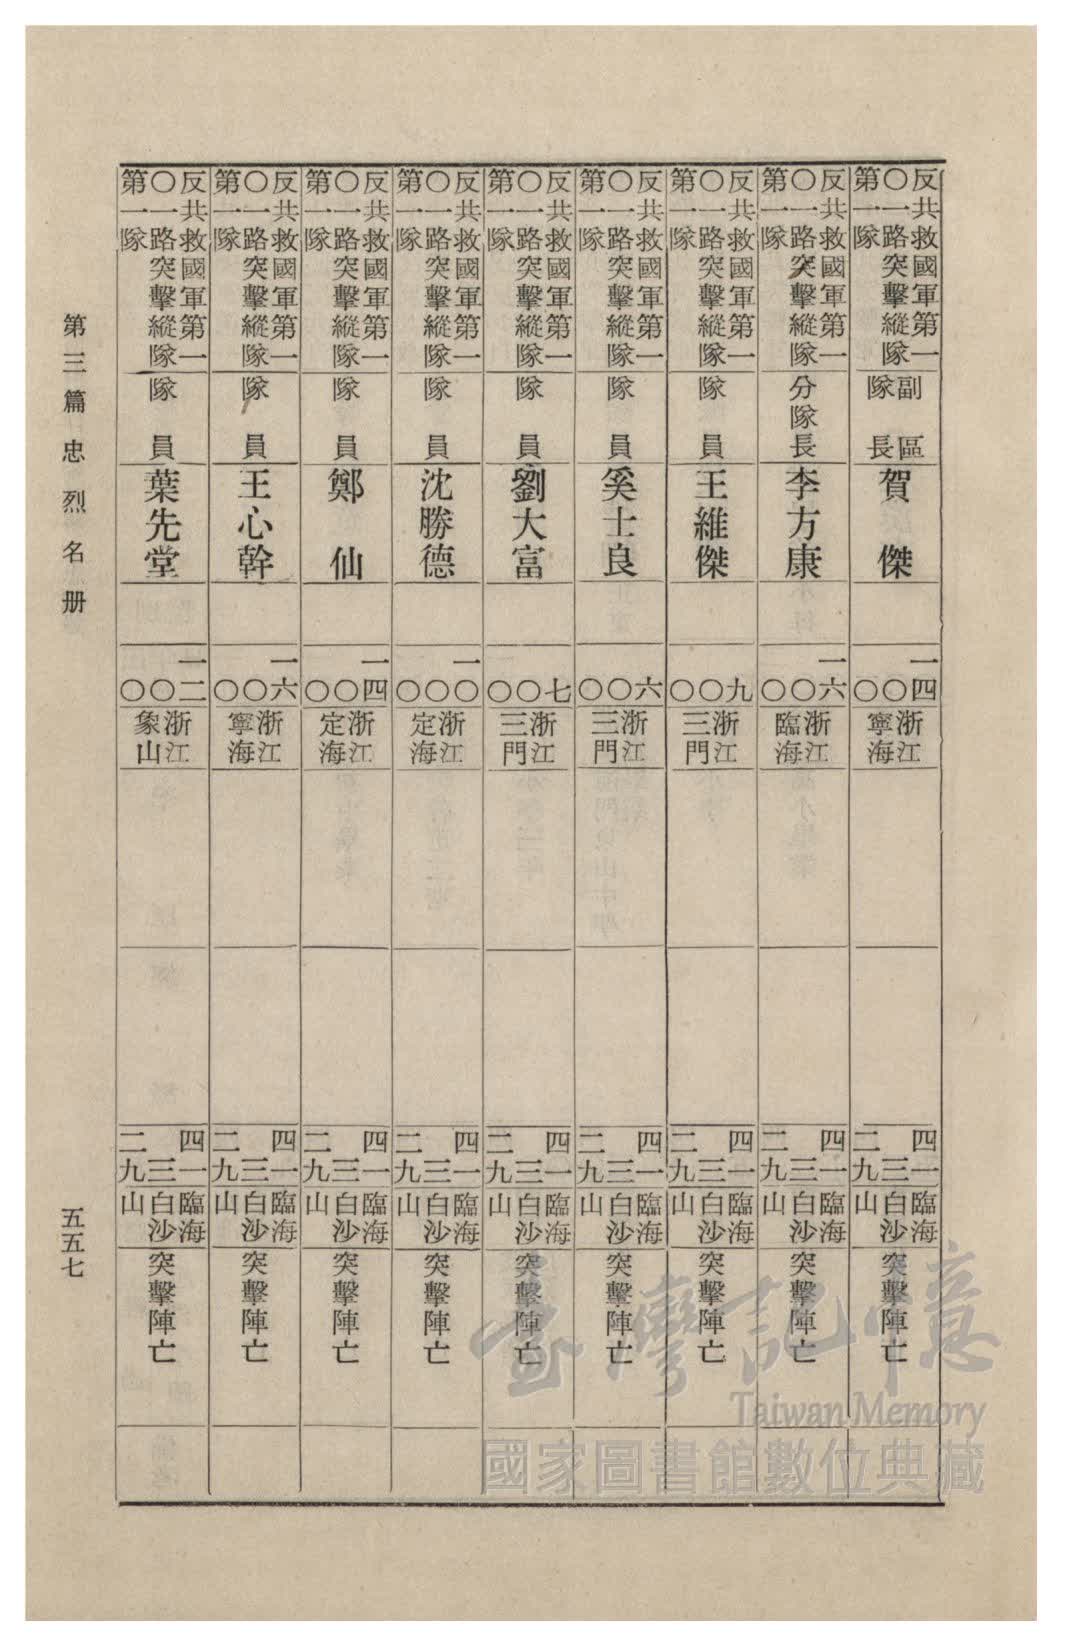 反共救國軍第一
〇一路突擊縱隊
第一隊
副區
隊長
賀傑
一四
〇
〇
浙江
寧海
四一
三
二九
臨海
白沙
山
突擊陣亡
反共救國軍第一
〇一路突擊縱隊
第一隊
分隊長
李方康
一六
〇
〇
浙江
臨海
四一
三
二九
臨海
白沙
山
突擊陣亡
反共救國軍第一
〇一路突擊縱隊
第一隊
隊員
王維傑
九
〇
〇
浙江
三門
四一
三
二九
臨海
白沙
山
突擊陣亡
反共救國軍第一
〇一路突擊縱隊
第一隊
隊員
奚士良
六
〇
〇
浙江
三門
四一
三
二九
臨海
白沙
山
突擊陣亡
反共救國軍第一
〇一路突擊縱隊
第一隊
隊員
劉大富
七
〇
〇
浙江
三門
四一
三
二九
臨海
白沙
山
突擊陣亡
反共救國軍第一
〇一路突擊縱隊
第一隊
隊員
沈勝德
一〇
〇
〇
浙江
定海
四一
三
二九
臨海
白沙
山
突擊陣亡
反共救國軍第一
〇一路突擊縱隊
第一隊
隊員
鄭仙
一四
〇
〇
浙江
定海
四一
三
二九
臨海
白沙
山
突擊陣亡
反共救國軍第一
〇一路突擊縱隊
第一隊
隊員
王心幹
一六
〇
〇
浙江
寧海
四一
三
二九
臨海
白沙
山
突擊陣亡
反共救國軍第一
〇一路突擊縱隊
第一隊
隊員
葉先堂
一二
〇
〇
浙江
象山
四一
三
二九
臨海
白沙
山
突擊陣亡
第三篇 忠烈名册
五五七
臺灣記憶
Taiwan Memory
國家圖書館數位典藏